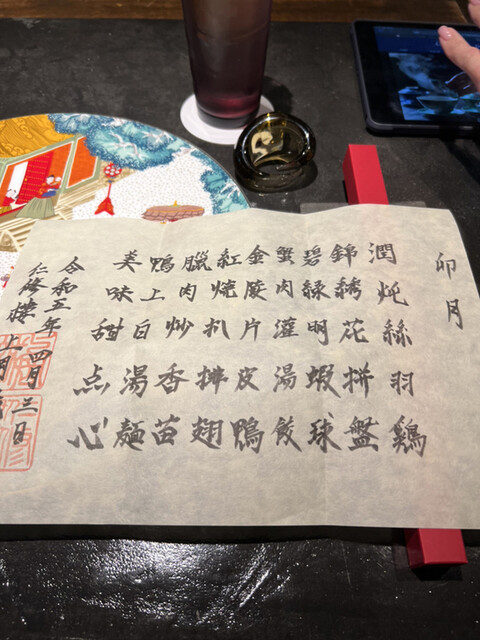 卯月
潤 絲羽鷄
錦綉花拼盤
碧緑明蝦球
蟹肉灌湯餃
金陵片皮鴨
紅燒扒排翅
臘肉炒香苗
鴨上白湯麵
美味甜点心
令和五年四月三日
仁修樓 上岡